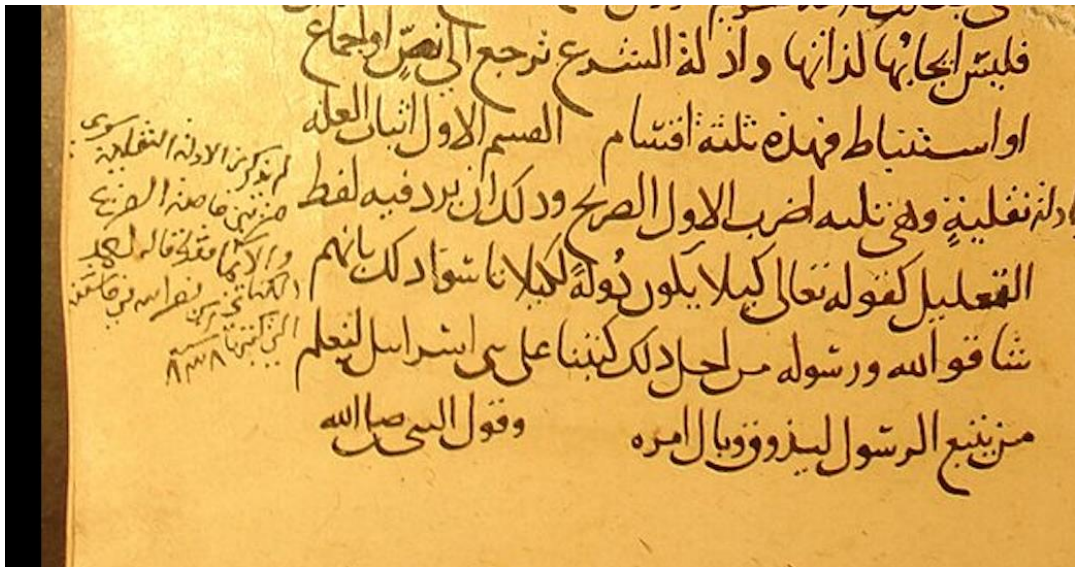 فليس ايجابها لذاتها وادلة الشرع ترجع الي نصٍّ او اجماع
او استنباط فهذه ثلثة اقسام القسم الاول اثبات العله
بادلة نقليةٍ وهي ثلثه اضرب الاول الصريح وذلك ان يرد فيه لفظ
التعليل كقوله تعالى كيلا يكون دُولةً لكيلا تاسوا ذلك بانهم
شاقوا الله ورسوله من اجل ذلك كتبنا على بني اسرايل لنعلم
من يتبع الرسول ليذوق وبال امره وقول النبي صلى الله
لم يذكر من الادلة النقلية سوى
ضربين خاصة الصريح
والايما